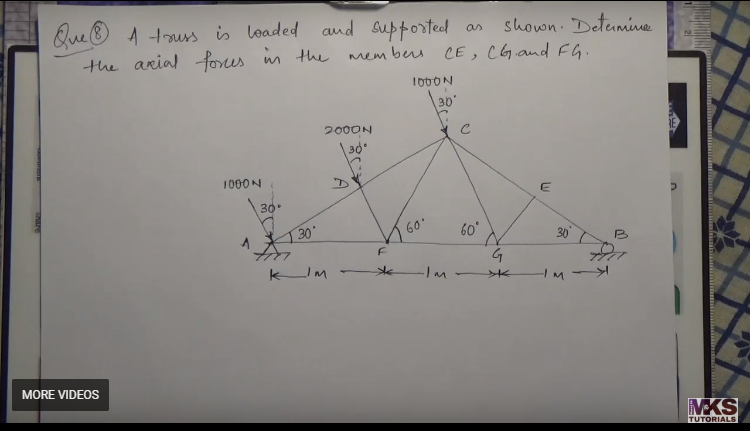 Que ⑧ A truss is loaded and supported as shown. Determine
the axial forces in the members CE, CG and FG.
1000N
30°
C
2000N
30°
D
E
1000N
30°
A
30°
60°
60°
30°
B
F
G
1m
1m
1m
MORE VIDEOS
MKS
TUTORIALS